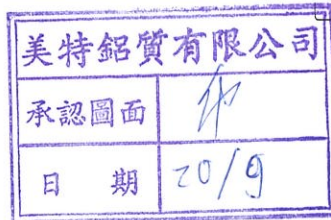 美特鋁質有限公司
承認圖面
日 期 20/9